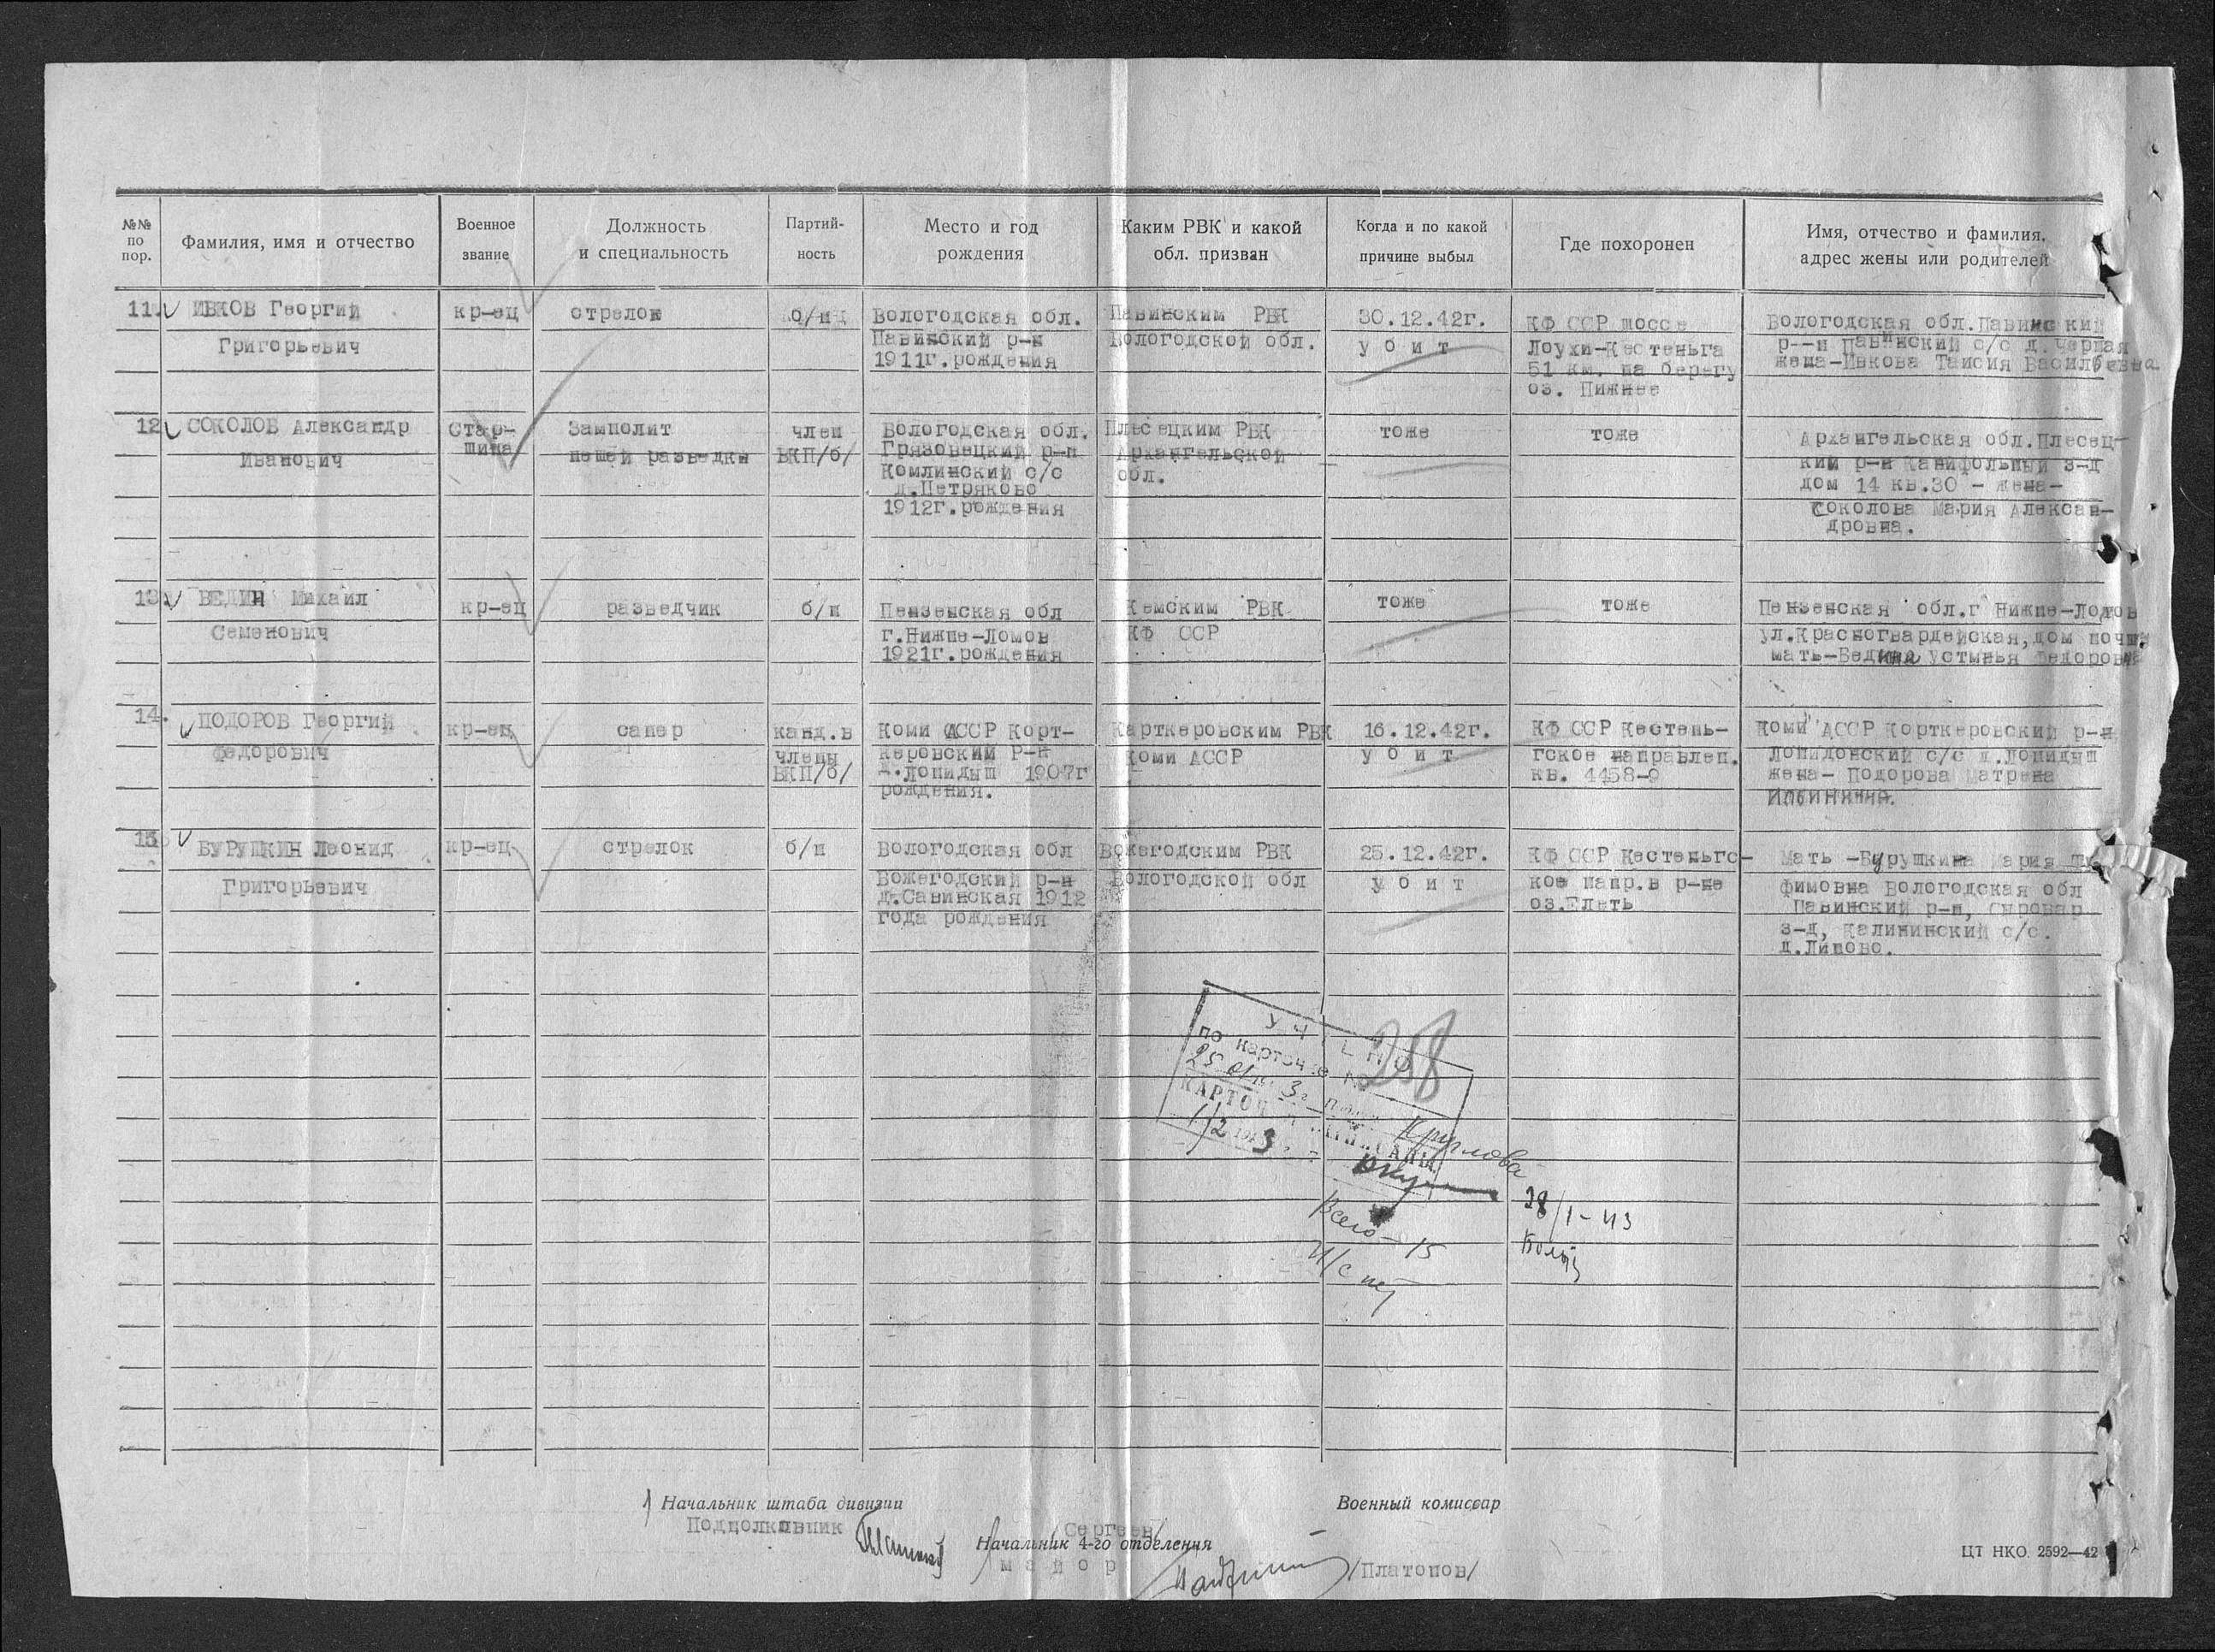 №№ по пор.
Фамилия, имя и отчество
Военное звание
Должность и специальность
Партий- ность
Место и год рождения
Каким РВК и какой обл. призван
Когда и по какой причине выбыл
Где похоронен
Имя, отчество и фамилия, адрес жены или родителей
11.
ИВКОВ Георгий
Григорьевич
кр-ец
стрелок
б/п
Вологодская обл.
Павинский р-н
1911г.рождения
Павинским РВК
Вологодской обл.
30.12.42г.
убит
КФ ССР шоссе
Лоухи-Кестеньга
51 км. на берегу
оз. Нижнее
Вологодская обл.Павинский
р--н Павинский с/с д.Черная
жена-Ивкова Таисия Васильевна
12
СОКОЛОВ Александр
Иванович
Стар-
шина
Замполит
пешей разведки
член
ВКП/б/
Вологодская обл.
Грязовецкий р-н
Комлинский с/с
д.Петряково
1912г.рождения
Плесецким РВК
Архангельской
обл.
тоже
тоже
Архангельская обл.Плесец-
кий р-н Канифольный з-д
дом 14 кв.30 - жена-
Соколова Мария Алексан-
дровна.
13.
ВЕДИН Михаил
Семенович
кр-ец
разведчик
б/п
Пензенская обл
г.Нижне-Ломов
1921г.рождения
Кемским РВК
КФ ССР
тоже
тоже
Пензенская обл.г Нижне-Ломов
ул.Красногвардейская,дом почты
мать-Ведина Устинья Федоровна
14.
ПОДОРОВ Георгий
Федорович
кр-ец
сапер
канд.в
члены
ВКП/б/
Коми АССР Корт-
керовским р-н
д.Лопидыш 1907г
рождения.
Карткеровским РВК
Коми АССР
16.12.42г.
убит
КФ ССР Кестень-
гское направлен.
кв. 4458-9
Коми АССР Корткеровский р-н
Лопидонский с/с д.Лопидыш
жена- Подорова Матрена
Ильинична.
15
БУРУШКИН Леонид
Григорьевич
кр-ец
стрелок
б/п
Вологодская обл
Вожегодский р-н
д.Савинская 1912
года рождения
Вожегодским РВК
Вологодской обл
25.12.42г.
убит
КФ ССР Кестеньгс-
кое напр.в р-не
оз.Елеть
Мать -Бурушкина Мария
фимовна Вологодская обл
Павинский р-н, сыровар
з-д, Калининский с/с.
д.Липово.
УЧТЕНО
по карточке № 258
25 3г.
КАРТОЧКИ НАПИСАНЫ
Круглова
1/2 1943 г.
Всего - 15
И/с нет
28/1-43
Начальник штаба дивизии
Подполковник
/Сергеев/
Военный комиссар
Начальник 4-го отделения
майор
/Платонов/
ЦТ НКО. 2592—42